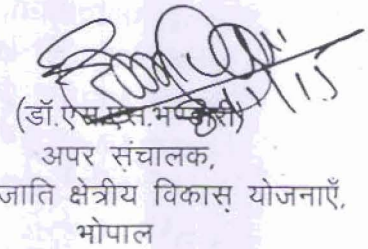 (डॉ.एस.एस.भण्डारी)
अपर संचालक,
जाति क्षेत्रीय विकास योजनाएँ,
भोपाल